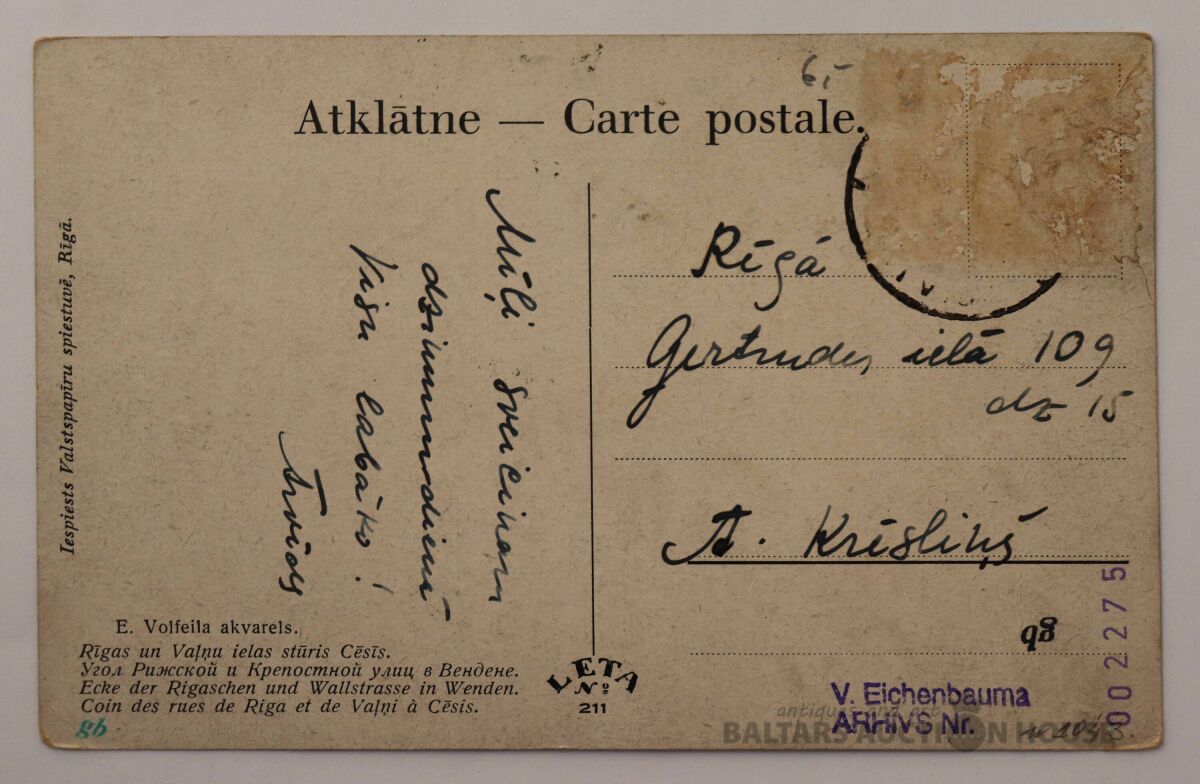 6,-
Atklātne — Carte postale.
Iespiests Valstspapīru spiestuvē, Rīgā.
Mīļi sveicinam
dzimumdienā
Visu labāko!
Arvīds
Rīgā
Gertrudes ielā 109
dz 15
A. Krēsliņš
E. Volfeila akvarels.
Rīgas un Vaļņu ielas stūris Cēsīs.
Угол Рижской и Крепостной улиц в Вендене.
Ecke der Rigaschen und Wallstrasse in Wenden.
Coin des rues de Riga et de Vaļņi à Cēsis.
gb
LETA
Nº
211
V. Eichenbauma
ARHIVS Nr.
002275
antiques and art
BALTARS AUCTION HOUSE